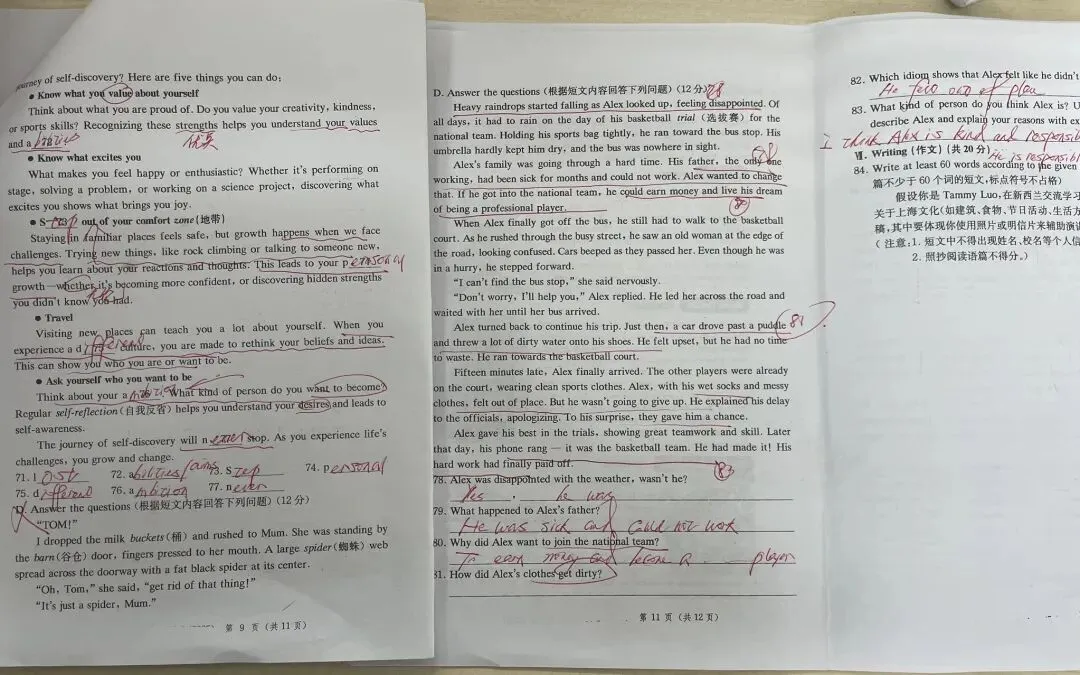 journey of self-discovery? Here are five things you can do:
● Know what you value about yourself
Think about what you are proud of. Do you value your creativity, kindness,
or sports skills? Recognizing these strengths helps you understand your values
and a bilities
● Know what excites you
What makes you feel happy or enthusiastic? Whether it's performing on
stage, solving a problem, or working on a science project, discovering what
excites you shows what brings you joy.
● S tep out of your comfort zone(地带)
Staying in familiar places feels safe, but growth happens when we face
challenges. Trying new things, like rock climbing or talking to someone new,
helps you learn about your reactions and thoughts. This leads to your p ersonal
growth—whether it's becoming more confident, or discovering hidden strengths
you didn't know you had.
● Travel
Visiting new places can teach you a lot about yourself. When you
experience a d ifferent culture, you are made to rethink your beliefs and ideas.
This can show you who you are or want to be.
● Ask yourself who you want to be
Think about your a mbition. What kind of person do you want to become?
Regular self-reflection(自我反省) helps you understand your desires and leads to
self-awareness.
The journey of self-discovery will n ever stop. As you experience life's
challenges, you grow and change.
71. l ost 72. abilities 73. S tep 74. p ersonal
75. d ifferent 76. a mbition 77. n ever
D. Answer the questions (根据短文内容回答下列问题)(12分)
“TOM!”
I dropped the milk buckets(桶) and rushed to Mum. She was standing by
the barn(谷仓) door, fingers pressed to her mouth. A large spider(蜘蛛) web
spread across the doorway with a fat black spider at its center.
“Oh, Tom,” she said, “get rid of that thing!”
“It's just a spider, Mum.”
第 9 页 (共 11 页)
D. Answer the questions (根据短文内容回答下列问题)(12分) 78
Heavy raindrops started falling as Alex looked up, feeling disappointed. Of
all days, it had to rain on the day of his basketball trial (选拔赛) for the
national team. Holding his sports bag tightly, he ran toward the bus stop. His
umbrella hardly kept him dry, and the bus was nowhere in sight.
Alex's family was going through a hard time. His father, the only one
working, had been sick for months and could not work. Alex wanted to change
that. If he got into the national team, he could earn money and live his dream
of being a professional player. 80
When Alex finally got off the bus, he still had to walk to the basketball
court. As he rushed through the busy street, he saw an old woman at the edge of
the road, looking confused. Cars beeped as they passed her. Even though he was
in a hurry, he stepped forward.
“I can't find the bus stop,” she said nervously.
“Don't worry, I'll help you,” Alex replied. He led her across the road and
waited with her until her bus arrived.
Alex turned back to continue his trip. Just then, a car drove past a puddle 81
and threw a lot of dirty water onto his shoes. He felt upset, but he had no time
to waste. He ran towards the basketball court.
Fifteen minutes late, Alex finally arrived. The other players were already
on the court, wearing clean sports clothes. Alex, with his wet socks and messy
clothes, felt out of place. But he wasn't going to give up. He explained his delay
to the officials, apologizing. To his surprise, they gave him a chance.
Alex gave his best in the trials, showing great teamwork and skill. Later
that day, his phone rang — it was the basketball team. He had made it! His
hard work had finally paid off. 83
78. Alex was disappointed with the weather, wasn't he?
Yes , he was
79. What happened to Alex's father?
He was sick and could not work
80. Why did Alex want to join the national team?
To earn money and become a player
81. How did Alex's clothes get dirty?
第 11 页 (共 12 页)
82. Which idiom shows that Alex felt like he didn't
He felt out of place
83. What kind of person do you think Alex is? U
describe Alex and explain your reasons with ex
I think Alex is kind and responsib
He is responsibl
Ⅶ. Writing (作文) (共 20 分)
84. Write at least 60 words according to the given
篇不少于 60 个词的短文,标点符号不占格)
假设你是 Tammy Luo,在新西兰交流学习
关于上海文化(如建筑、食物、节日活动、生活方
稿,其中要体现你使用照片或明信片来辅助演讲
(注意:1. 短文中不得出现姓名、校名等个人信
2. 照抄阅读语篇不得分。)